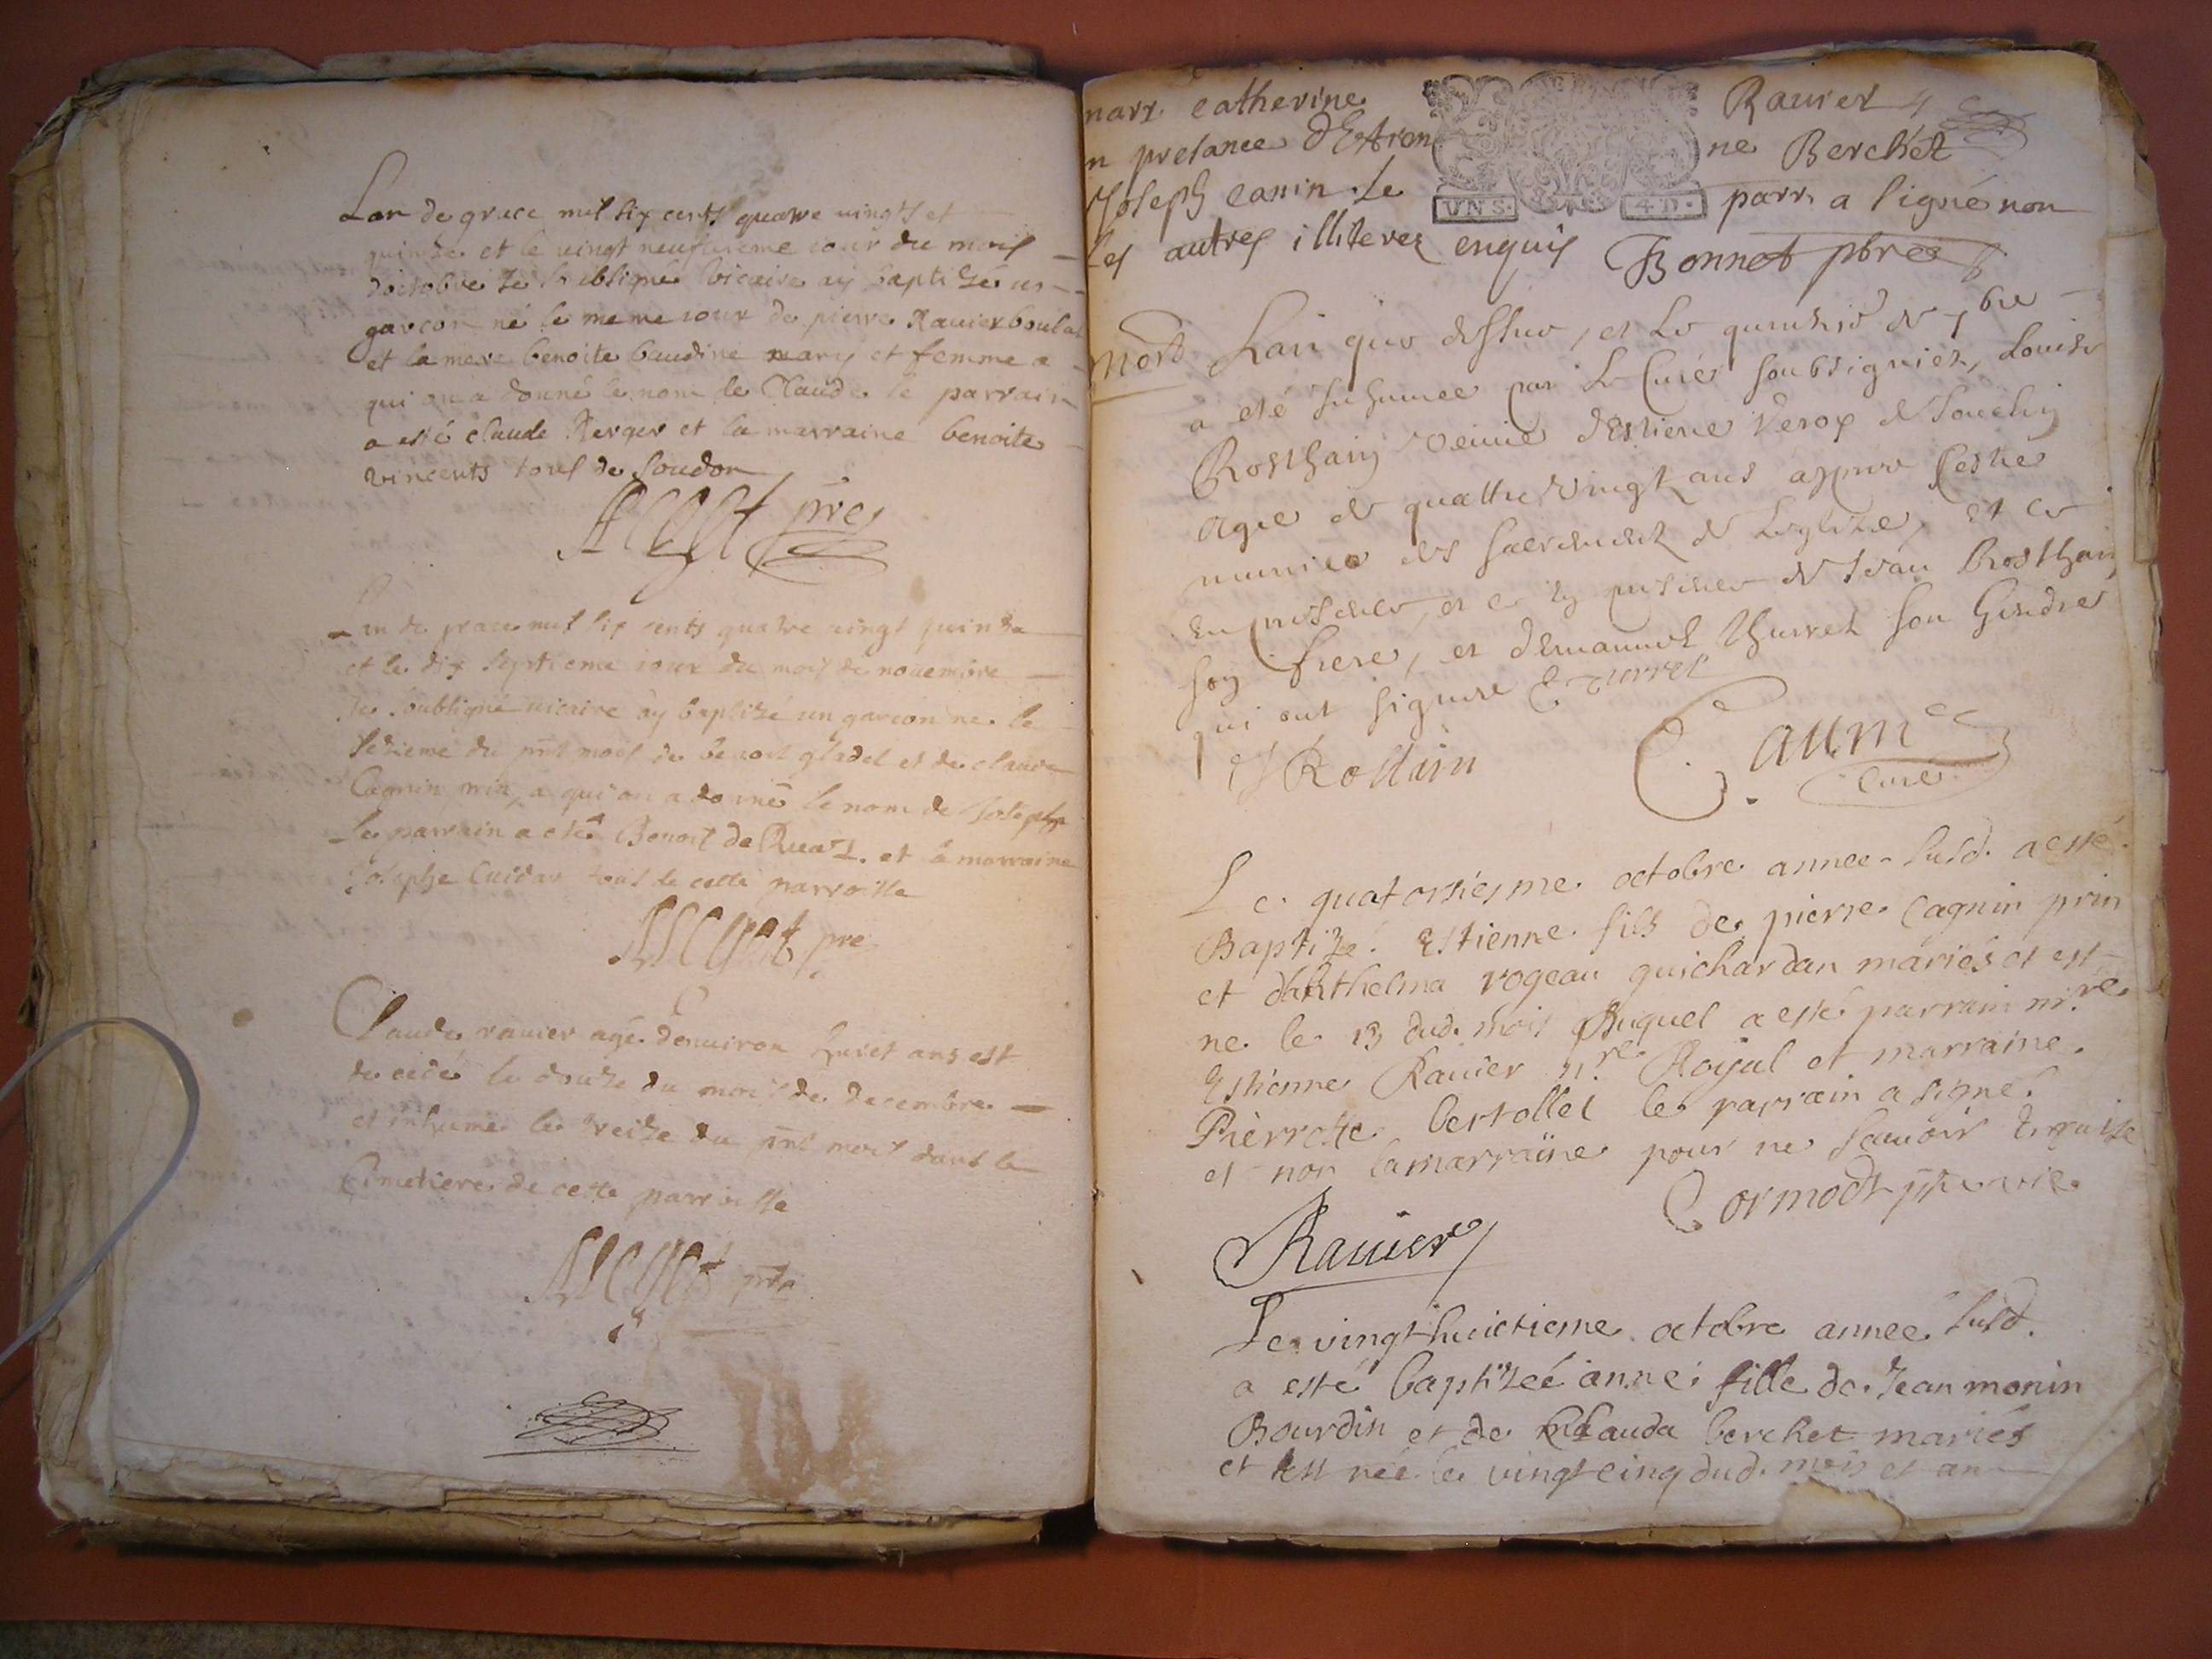 Lan de grace mil six cents quatre uingts et
quinze et le vingt neufuieme iour du mois
doctobre Je soubsigné vicaire ay baptizé un
garcon né le meme iour de pierre Rauier boulat
et la mere benoite baudine mary et femme a
qui on a donné le nom de Claude le parrain
a esté claude Berger et la marraine benoite
vincents tous de Soudon
pre
Lan de grace mil six cents quatre uingt quinze
et le dix septieme iour du mois de nouembre
Je soubsigné uicaire ay baptizé un garcon ne le
sezieme du pnt mois de benoit gladel et de claude
Cagnin a qui on a donné le nom de Joseph
Le parrain a esté Benoit de et la marraine
Josephe Cuidar tous de cette parroisse
pre
Claude rauier agé denuiron huict ans est
decedé le douze du mois de decembre
et inhumé le treize du pnt mois dans le
Cimetiere de cette parroisse
marr. catherine Rauier
n presance dEstienne Berchet
Joseph canin le parr. a signé non
les autres illiterez enquis Bonnet pbre
UN S. 4 D.
Mort Lan que dessus, et le de 7bre
a eté Inhumee par Le Curé soubsignier, Louise
Rosthaing veuue dEstiene Verox de
agee de quattre vingt ans appres estre
munies des sacrements de Leglize, et ce
en presence de Jean Rosthain
son frere, et demanuel Thurrel son Gendre
qui ont signure E Turrel
J Rostain
C. aume
Curé
Le quatorsiesme octobre annee susd. a esté
Baptizé Estienne fils de pierre Cagnin prin
et danthelma rogeau guichardan mariés et est
ne le 13 dud. mois duquel a esté parrain mre
Estienne Rauier nre Royal et marraine
Pierrette bertollet le parrain a signé
et non la marraine pour ne scauoir de
Cormod
Rauier
Le vingt huictieme octobre annee susd.
a esté baptizeé anne fille de Jean monin
Bourdin et de Clauda berchet mariés
et est neé le vingt cinq dud. mois et an